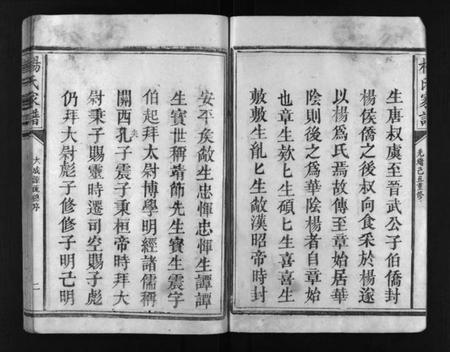 楊氏家譜
光緒己丑重修
生唐叔虞至晉武公子伯僑封
楊侯僑之後叔向食采於楊遂
以楊爲氏焉故傳至章始居華
陰則後之爲華陰楊者自章始
也章生欸欸生碩匕生喜喜生
敷敷生胤匕生敵漢昭帝時封
安平矦敵生忠惲忠惲生譚譚
生寶世稱靖節先生寶生震字
伯起拜太尉博學明經諸儒稱
關西孔子震子秉桓帝時拜大
尉秉子賜靈時遷司空賜子彪
仍拜大尉彪子修修子明己明
楊氏家譜
二